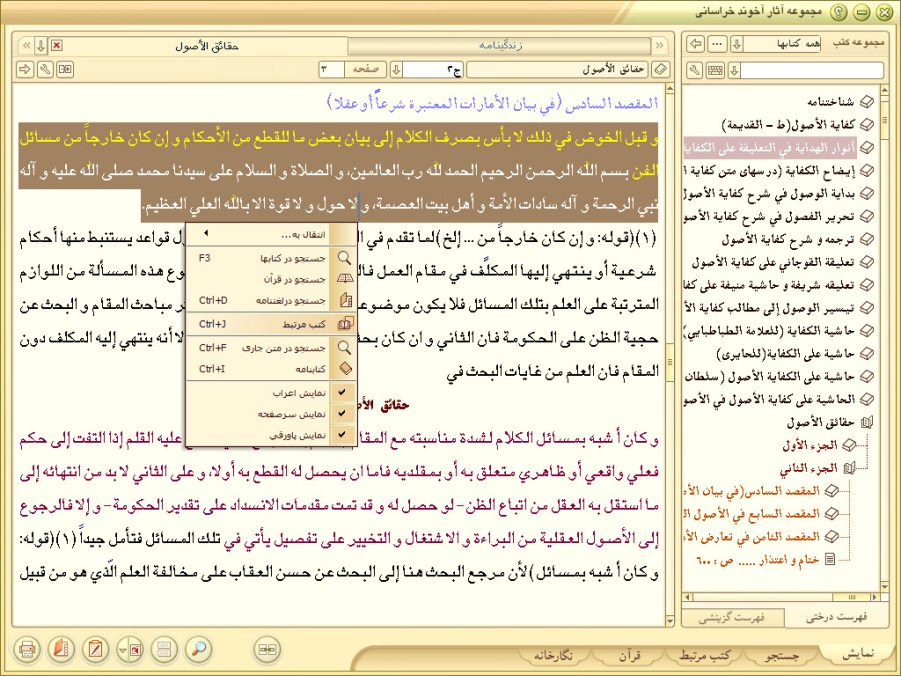 مجموعه آثار آخوند خراسانی
مجموعه کتب
همه کتابها
شناختنامه
کفایة الأصول(ط – القدیمة)
أنوار الهدایة في التعلیقة علی الکفایـ
إیضاح الکفایة (درسهای متن کفایة ا
بدایة الوصول في شرح کفایة الأصوا
تحریر الفصول في شرح کفایة الأصو
ترجمه و شرح کفایة الأصول
تعلیقة القوجاني علی کفایة الأصول
تعلیقه شریفة و حاشیة منیفة علی کفا
تیسیر الوصول إلی مطالب کفایة الأ
حاشیة الکفایة (للعلامة الطباطبایي)
حاشیة علی الکفایة(للحایری)
حاشیة علی کفایة الأصول ( سلطان
الحاشیة علی کفایة الأصول في الأصو
حقائق الأصول
الجزء الأول
الجزء الثاني
المقصد السادس(في بیان الأم
المقصد السابع في الأصول ال
المقصد الثامن في تعارض الأد
ختام و اعتذار ..... ص : ۶۰۰
فهرست درختی
فهرست گزینشی
زندگینامه
حقائق الأصول
حقائق الأصول
ج۲
صفحه
۳
المقصد السادس (في بیان الأمارات المعتبرة شرعاً أو عقلا)
و قبل الخوض في ذلك لا بأس بصرف الکلام إلی بیان بعض ما للقطع من الأحکام و إن کان خارجاً من مسائل
الفن بسم اللّه الرحمن الرحیم الحمد للّه رب العالمین، و الصلاة و السلام علی سیدنا محمد صلی اللّه علیه و آله
نبي الرحمة و آله سادات الأمة و أهل بیت العصمة، و لا حول و لا قوة الا باللّه العلي العظیم.
(۱)(قوله: و إن کان خارجاً من ... إلخ) لما تقدم في ال
ل قواعد یستنبط منها أحکام
شرعیة أو ینتهي إلیها المکلّف في مقام العمل فال
وع هذه المسألة من اللوازم
المترتبة علی العلم بتلك المسائل فلا یکون موضوع
ر مباحث المقام و البحث عن
حجیة الظن علی الحکومة فان الثاني و ان کان بحث
لا أنه ینتهي إلیه المکلف دون
المقام فان العلم من غایات البحث في
حقائق الأص
و کان أشبه بمسائل الکلام لشدة مناسبته مع المقام
علیه القلم إذا التفت إلی حکم
فعلي واقعي أو ظاهري متعلق به أو بمقلدیه فاما ان یحصل له القطع به أولا، و علی الثاني لا بد من انتهائه إلی
ما استقل به العقل من اتباع الظن – لو حصل له و قد تمت مقدمات الانسداد علی تقدیر الحکومة – و إلا فالرجوع
إلی الأصول العقلیة من البراءة و الاشتغال و التخییر علی تفصیل یأتي في تلك المسائل فتأمل جیداً (۱)(قوله:
و کان أشبه بمسائل) لأن مرجع البحث هنا إلی البحث عن حسن العقاب علی مخالفة العلم الّذي هو من قبیل
انتقال به...
جستجو در کتابها F3
جستجو در قرآن
جستجو درلغتنامه Ctrl+D
کتب مرتبط Ctrl+J
جستجو در متن جاری Ctrl+F
کتابنامه Ctrl+I
نمایش اعراب
نمایش سرصفحه
نمایش پاورقی
نمایش
جستجو
کتب مرتبط
قرآن
نگارخانه